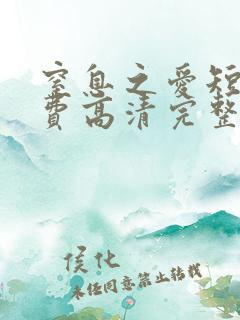 窒息之爱短
费高清完整
侯化
未经同意禁止转载